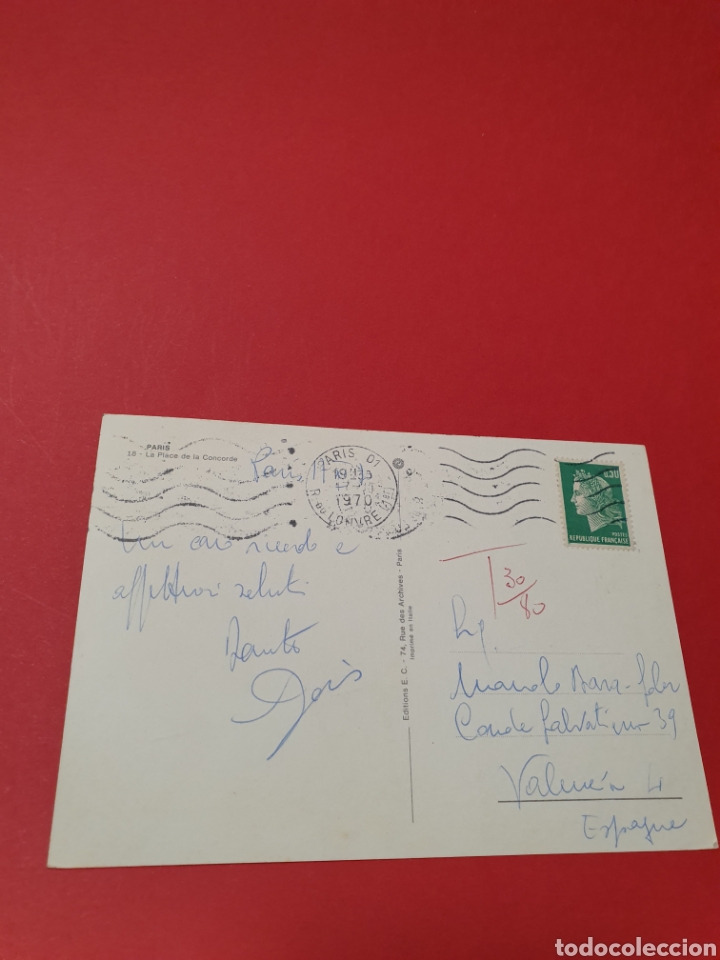 PARIS
18 - La Place de la Concorde
Paris 17
PARIS 01
1970
R. DU LOUVRE (1er)
0,30
POSTES
REPUBLIQUE FRANÇAISE
Un caro ricordo e
affettuosi saluti
Doris
Editions E. C. - 74, Rue des Archives - Paris
Imprimé en Italie
T 30/80
Manolo
Conde Salvatierra 39
Valencia 4
Espagne
todocoleccion